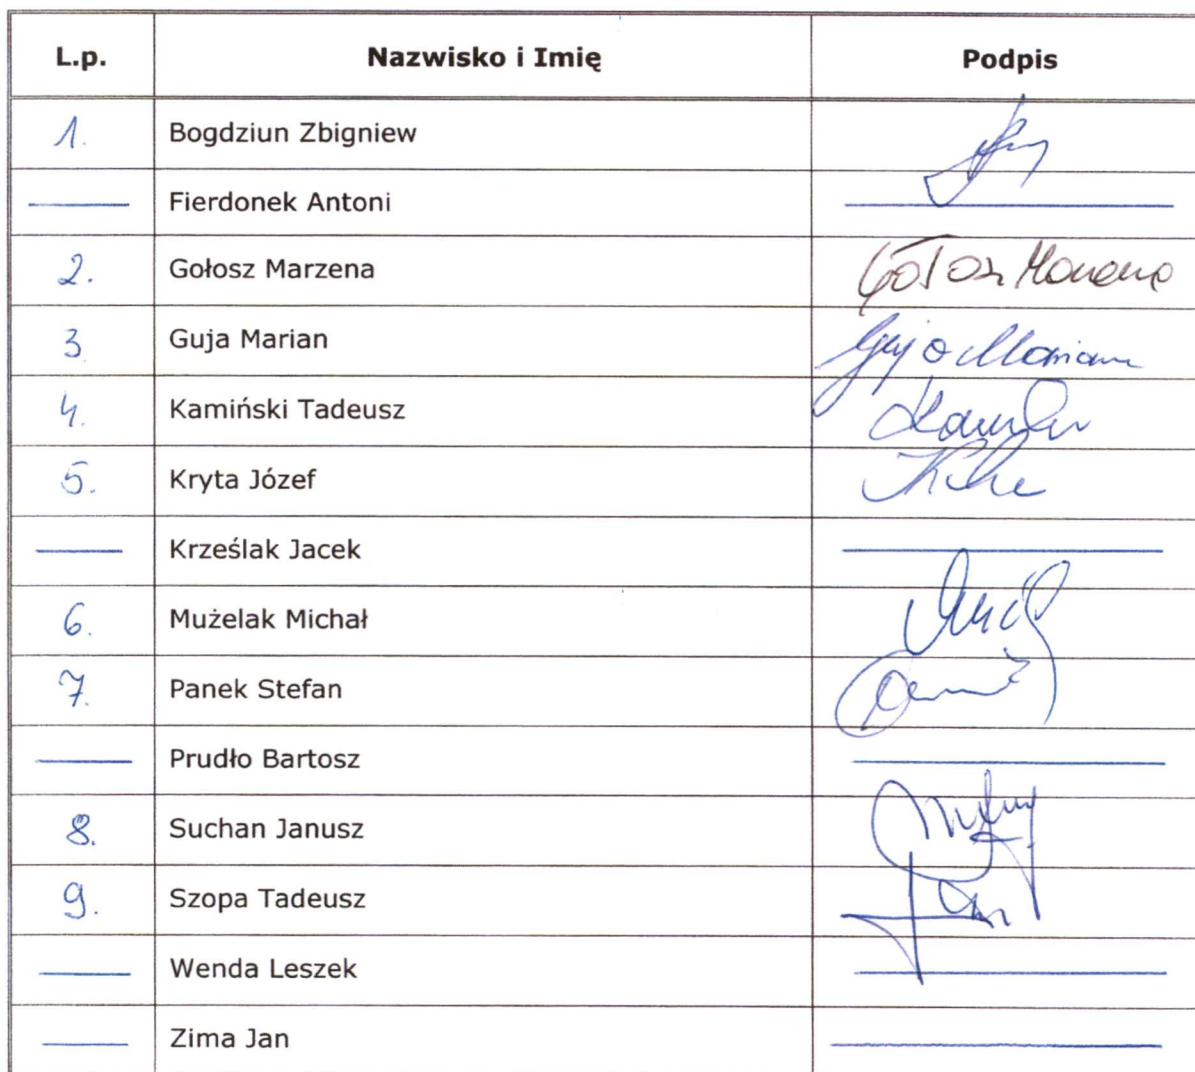 L.p. Nazwisko i Imię Podpis
1. Bogdziun Zbigniew
Fierdonek Antoni
2. Gołosz Marzena Gołosz Marzena
3. Guja Marian Guja Marian
4. Kamiński Tadeusz
5. Kryta Józef
Krześlak Jacek
6. Mużelak Michał
7. Panek Stefan
Prudło Bartosz
8. Suchan Janusz
9. Szopa Tadeusz
Wenda Leszek
Zima Jan